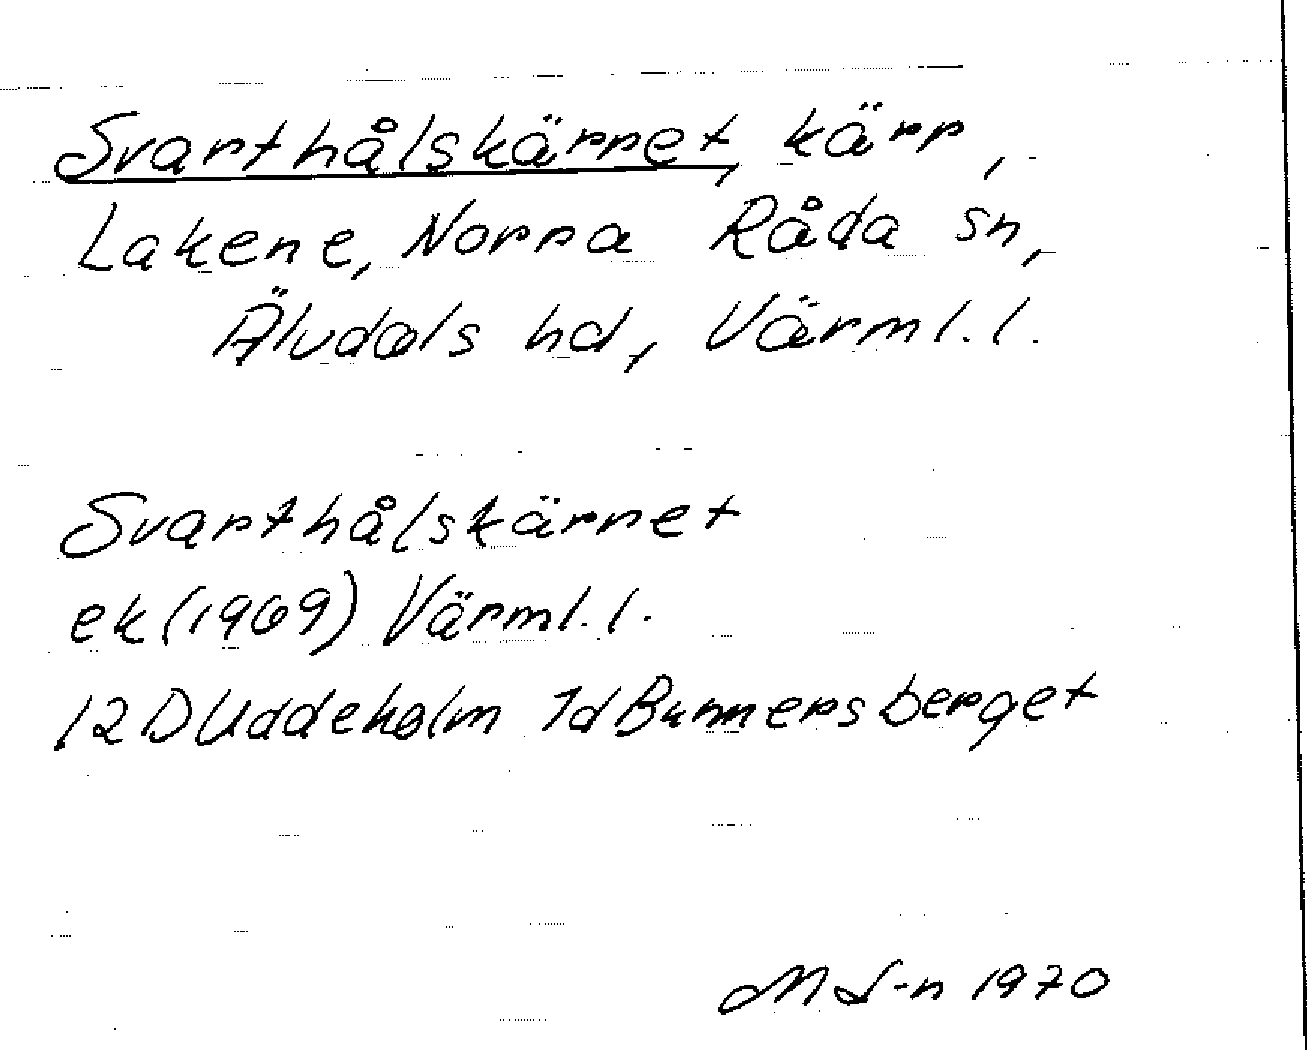 Svarthålskärret, kärr,
Lakene, Norra Råda sn,
Älvdals hd, Värml. l.
Svarthålskärret
ek (1969) Värml. l.
12D Uddeholm 1d Bunnersberget
M S-n 1970